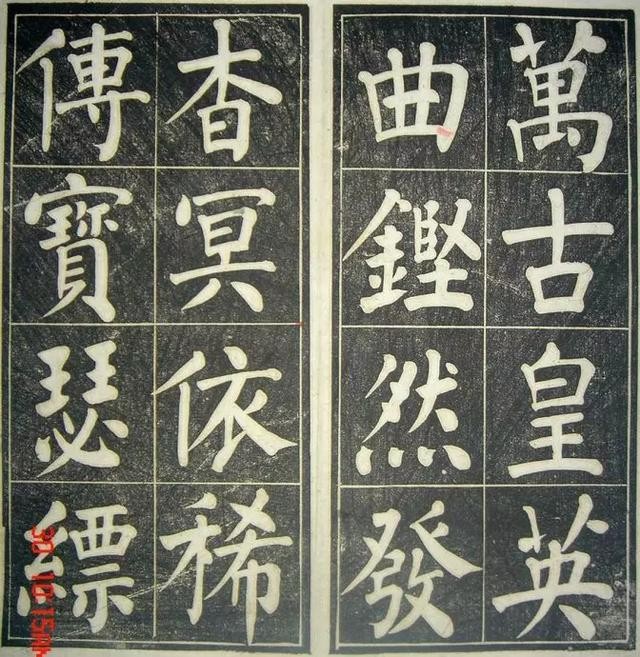 萬古皇英
曲鏗然發
杳冥依稀
傳寶瑟縹
30 10:15AM